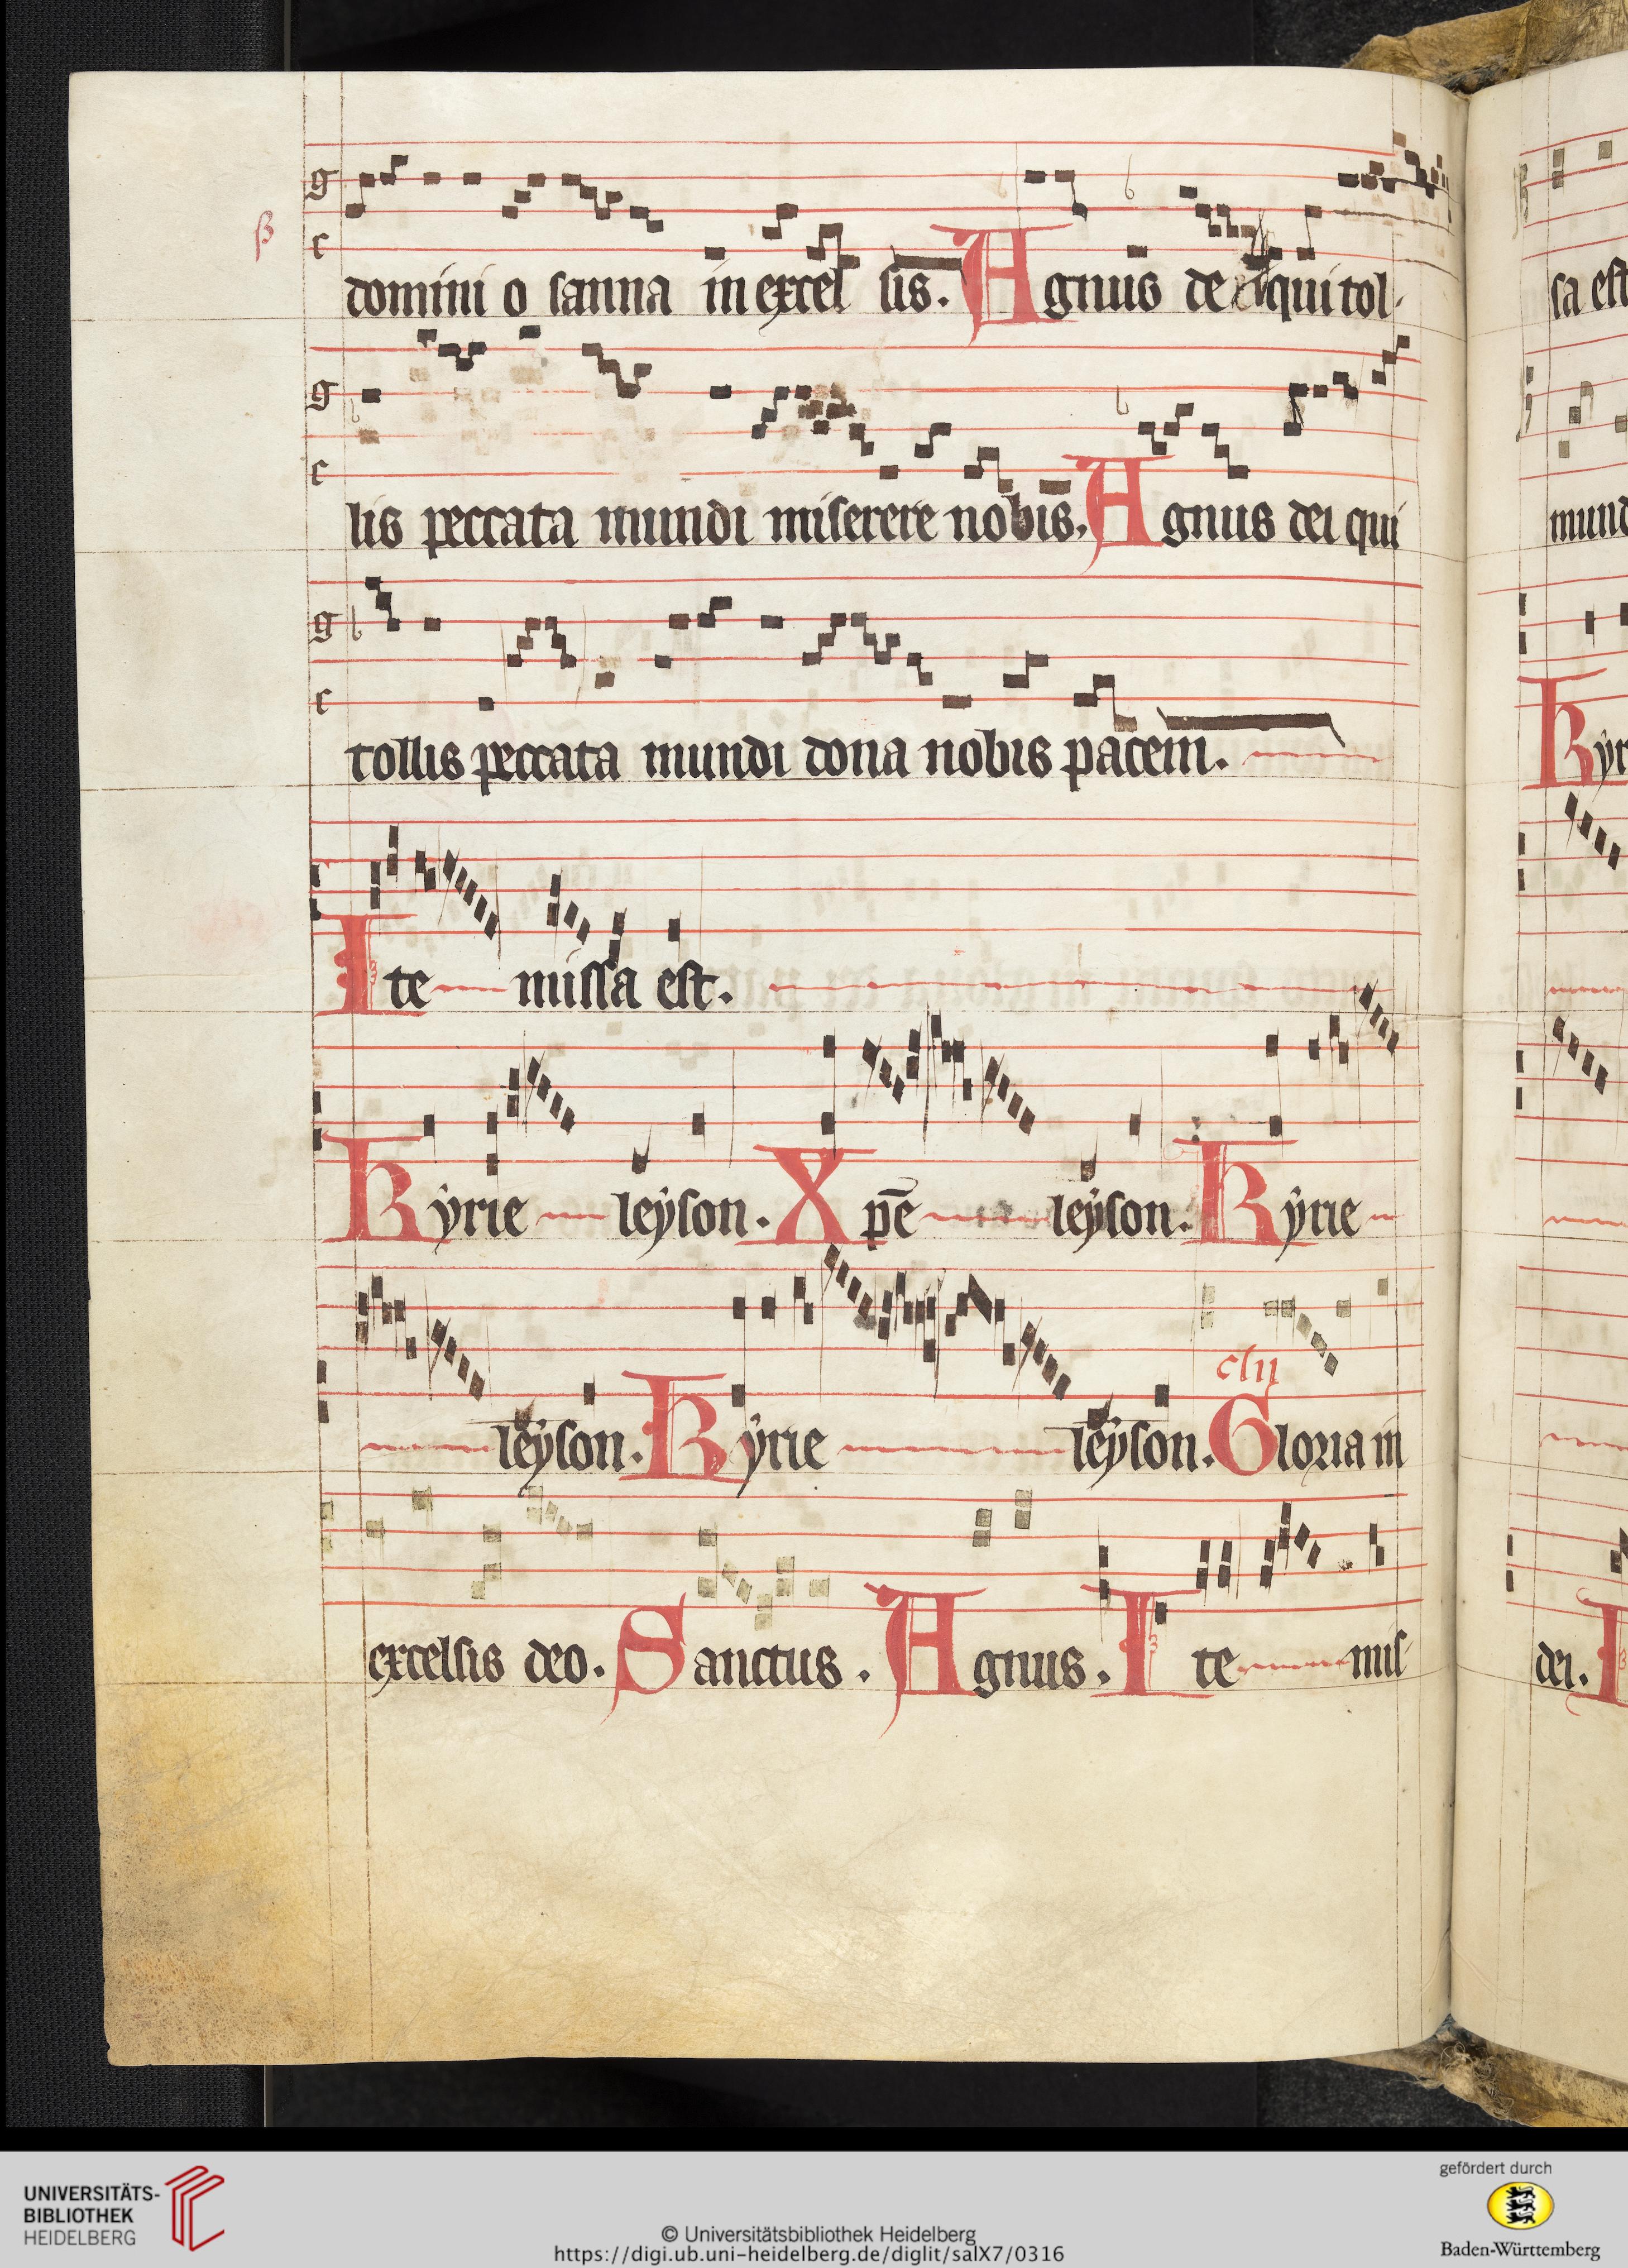 domini o sanna in excel sis. Agnus dei qui tol
lis peccata mundi miserere nobis. Agnus dei qui
tollis peccata mundi dona nobis pacem.
Ite missa est.
Kyrie leyson. Xp̄e leyson. Kyrie
leyson. Kyrie leyson. Gloria in
excelsis deo. Sanctus. Agnus. Ite mis
sa est
mund
Kyr
dei. I
UNIVERSITÄTS-
BIBLIOTHEK
HEIDELBERG
© Universitätsbibliothek Heidelberg
https://digi.ub.uni-heidelberg.de/diglit/salX7/0316
gefördert durch
Baden-Württemberg